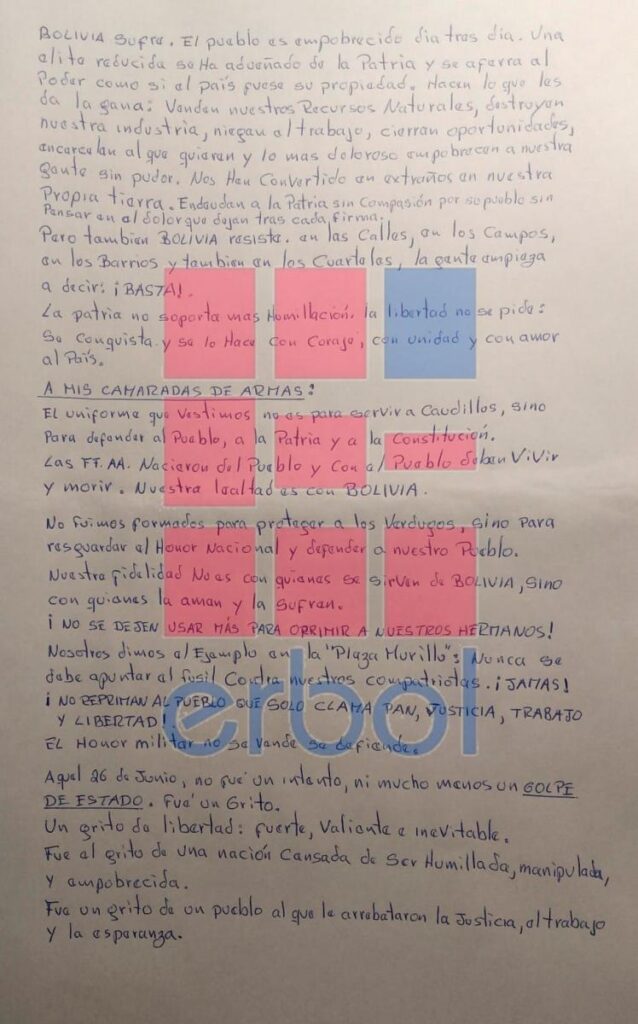 BOLIVIA Sufre. El pueblo es empobrecido dia tras dia. Una
elite reducida se Ha adueñado de la Patria y se aferra al
Poder como si el país fuese su propiedad. Hacen lo que les
da la gana: Venden nuestros Recursos Naturales, destruyen
nuestra industria, niegan el trabajo, cierran oportunidades,
encarcelan al que quieren y lo mas doloroso empobrecen a nuestra
gente sin pudor. Nos Han Convertido en extraños en nuestra
Propia tierra. Endeudan a la Patria sin Compasión por su pueblo sin
Pensar en el dolor que dejan tras cada firma.
Pero tambien BOLIVIA resiste. en las Calles, en los Campos,
en los Barrios y tambien en los Cuarteles, la gente empieza
a decir: ¡BASTA!.
La patria no soporta mas Humillación. la libertad no se pide:
Se conquista y se lo Hace con Coraje, con unidad y con amor
al País.
A MIS CAMARADAS DE ARMAS:
El uniforme que Vestimos no es para servir a Caudillos, sino
Para defender al Pueblo, a la Patria y a la Constitución.
Las FF.AA. Nacieron del Pueblo y Con el Pueblo deben ViVir
y morir. Nuestra lealtad es con BOLIVIA.
No fuimos formados para proteger a los Verdugos, sino Para
resguardar el Honor Nacional y defender a nuestro Pueblo.
Nuestra fidelidad No es con quienes se sirven de BOLIVIA, sino
con quienes la aman y la sufren.
¡ NO SE DEJEN USAR MÁS PARA OPRIMIR A NUESTROS HERMANOS!
Nosotros dimos el Ejemplo en la "Plaza Murillo": Nunca se
debe apuntar el fusil Contra nuestros compatriotas. ¡JAMAS!
¡ NO REPRIMAN AL PUEBLO QUE SOLO CLAMA PAN, JUSTICIA, TRABAJO
Y LIBERTAD!.
EL Honor militar no se Vende se defiende.
Aquel 26 de Junio, no fue un intento, ni mucho menos un GOLPE
DE ESTADO. Fue un Grito.
Un grito de libertad: fuerte, Valiente e inevitable.
Fue el grito de una nación Cansada de Ser Humillada, manipulada,
Y empobrecida.
Fue un grito de un pueblo al que le arrebataron la Justicia, el trabajo
Y la esperanza.
erbol